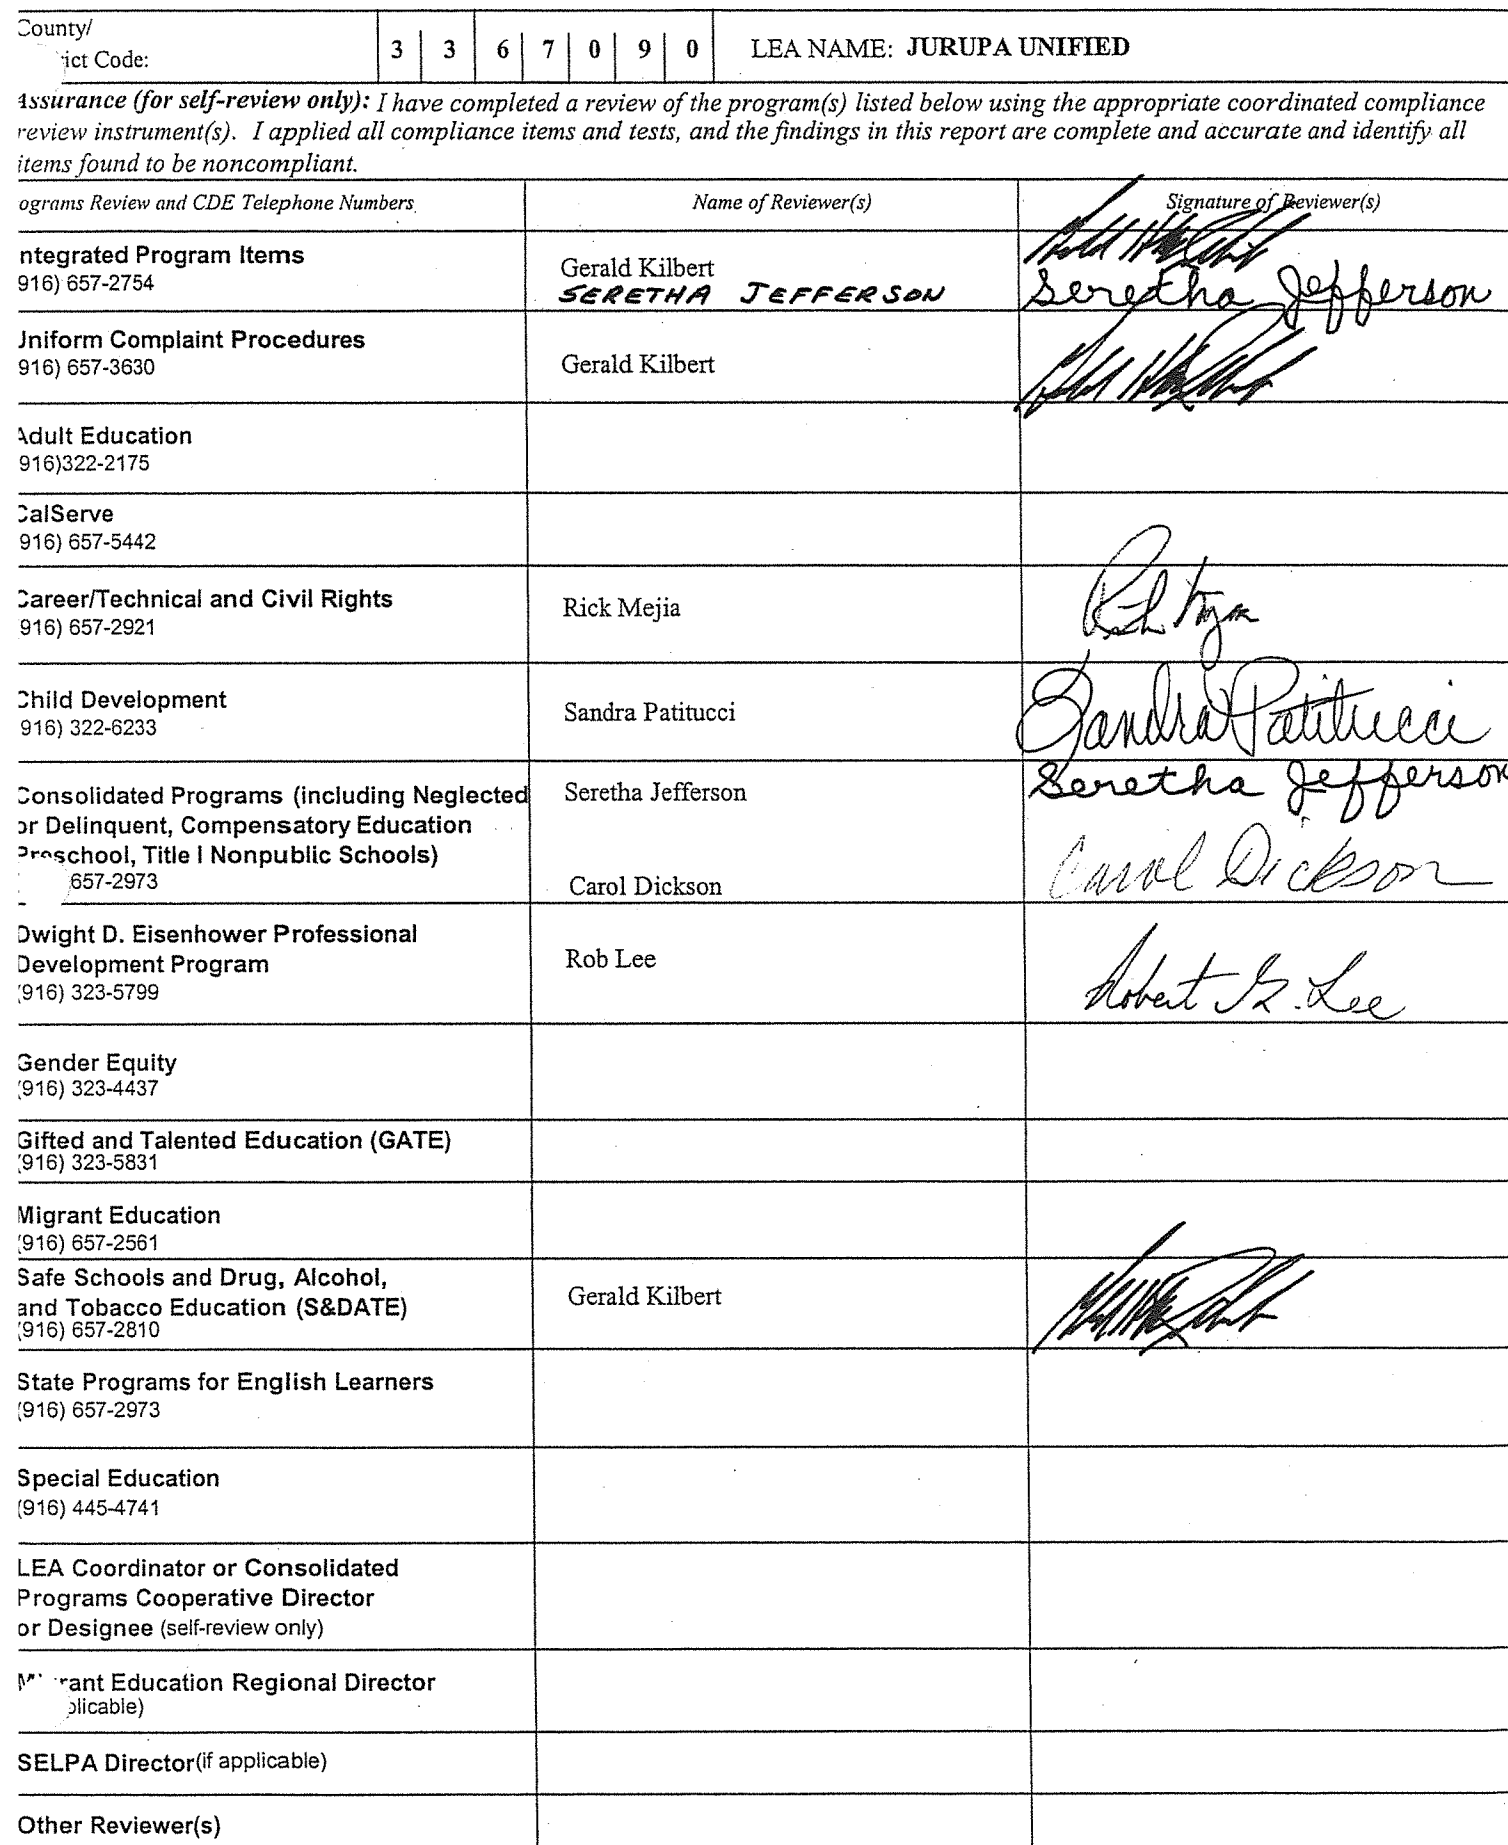 County/
ict Code:
3 3 6 7 0 9 0 LEA NAME: JURUPA UNIFIED
Assurance (for self-review only): I have completed a review of the program(s) listed below using the appropriate coordinated compliance
review instrument(s). I applied all compliance items and tests, and the findings in this report are complete and accurate and identify all
items found to be noncompliant.
ograms Review and CDE Telephone Numbers Name of Reviewer(s) Signature of Reviewer(s)
ntegrated Program Items
916) 657-2754
Gerald Kilbert
SERETHA JEFFERSON
Seretha Jefferson
Uniform Complaint Procedures
916) 657-3630
Gerald Kilbert
Adult Education
916)322-2175
CalServe
916) 657-5442
Career/Technical and Civil Rights
916) 657-2921
Rick Mejia
Child Development
916) 322-6233
Sandra Patitucci
Sandra Patitucci
Consolidated Programs (including Neglected
or Delinquent, Compensatory Education
Preschool, Title I Nonpublic Schools)
657-2973
Seretha Jefferson
Carol Dickson
Seretha Jefferson
Carol Dickson
Dwight D. Eisenhower Professional
Development Program
(916) 323-5799
Rob Lee
Robert G. Lee
Gender Equity
(916) 323-4437
Gifted and Talented Education (GATE)
(916) 323-5831
Migrant Education
(916) 657-2561
Safe Schools and Drug, Alcohol,
and Tobacco Education (S&DATE)
(916) 657-2810
Gerald Kilbert
State Programs for English Learners
(916) 657-2973
Special Education
(916) 445-4741
LEA Coordinator or Consolidated
Programs Cooperative Director
or Designee (self-review only)
M rant Education Regional Director
plicable)
SELPA Director(if applicable)
Other Reviewer(s)